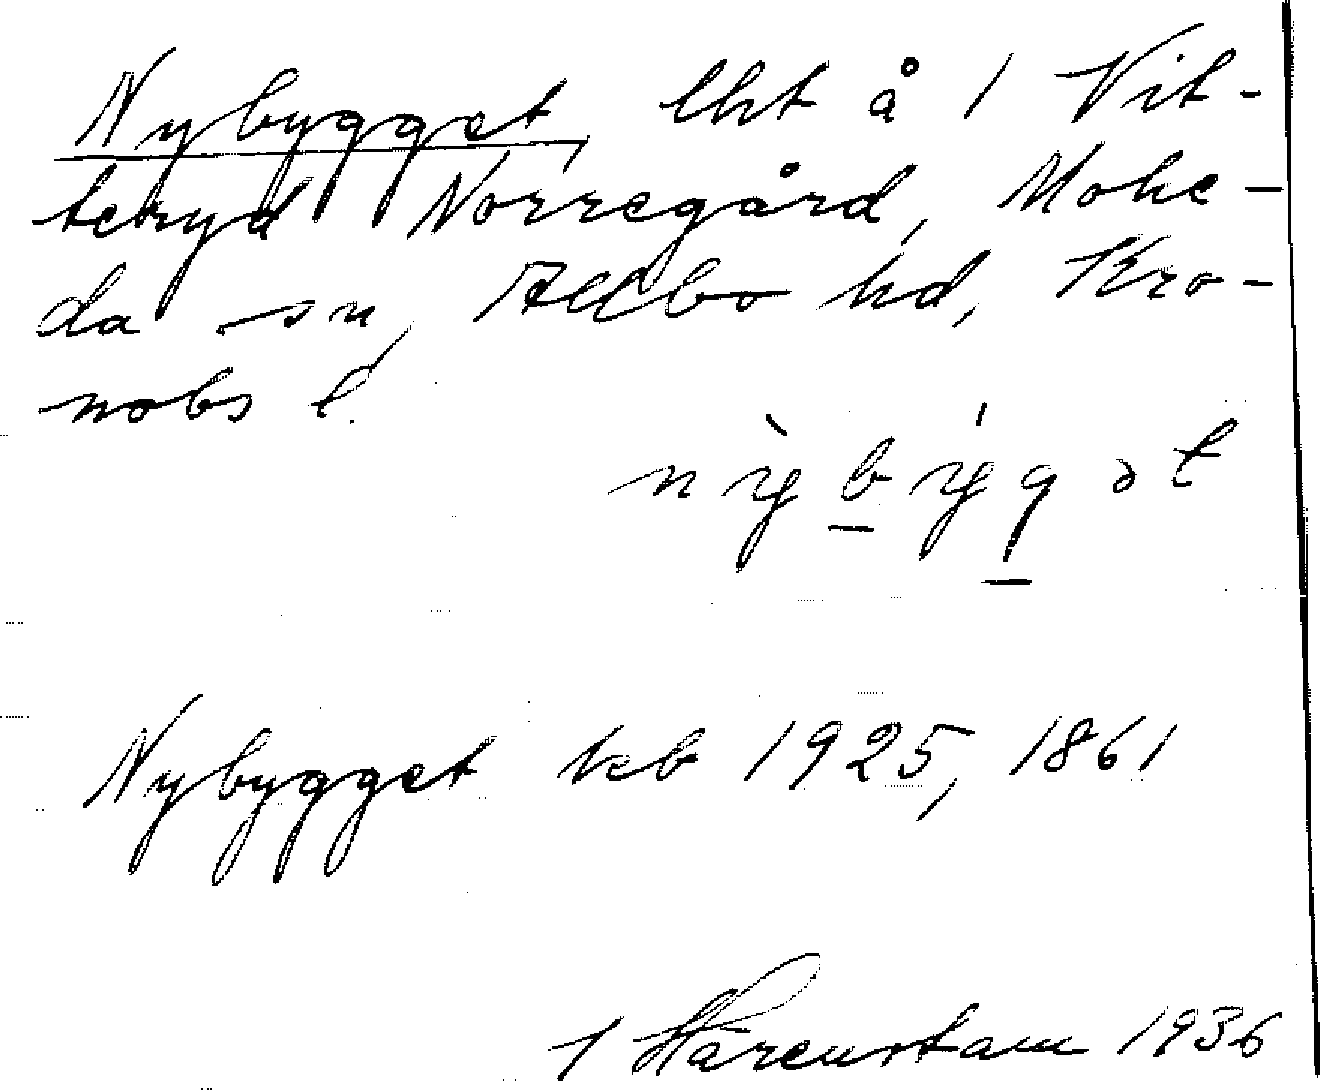 Nybygget, lht å 1 Vit-
teryd Norregård, Mohe-
da sn, Allbo hd, Kro-
nobs l.
nỳbýgət
Nybygget kb 1925, 1861
1 Hårenstam 1936